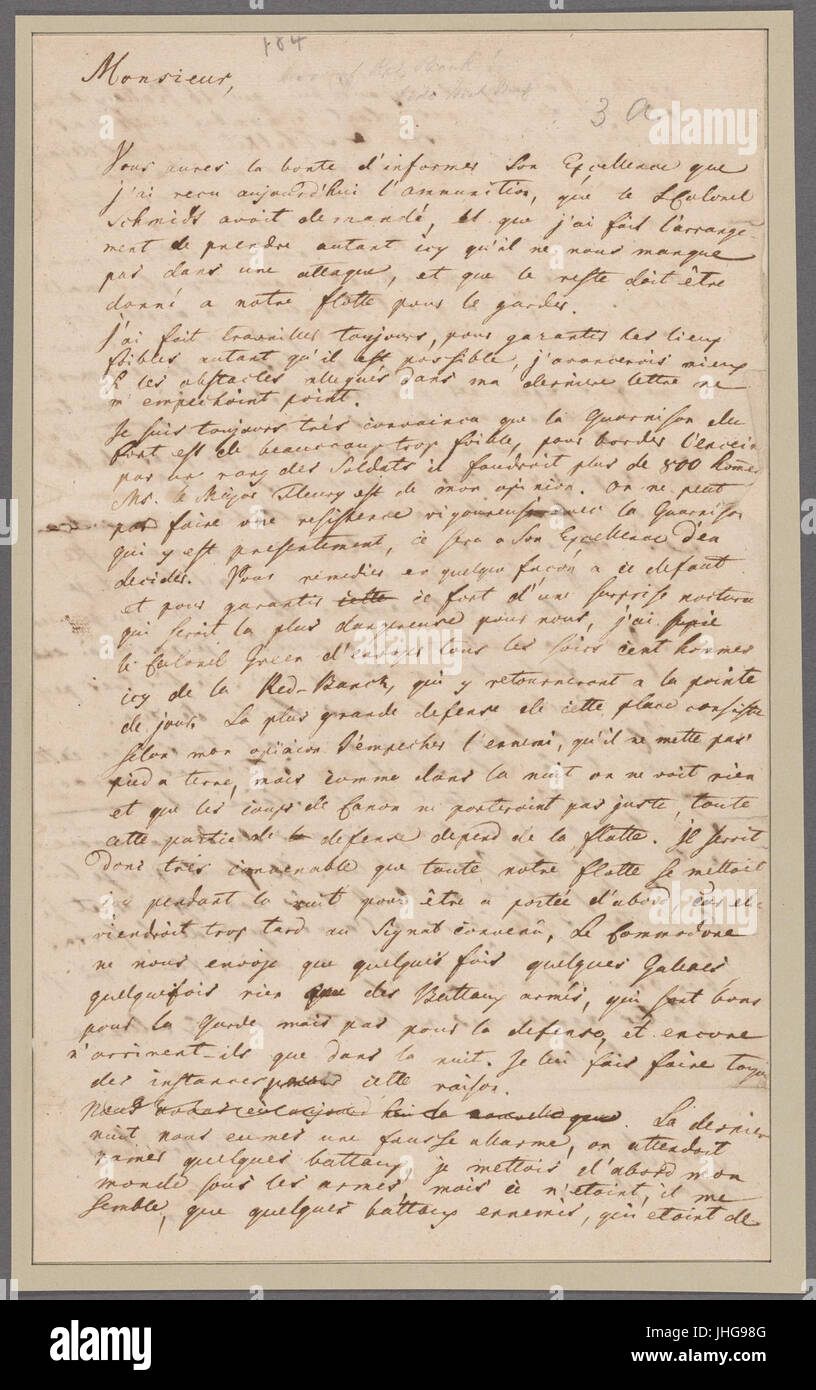 184
3 a
Monsieur,
Vous aures la bonte d'informer Son Excellence que
j'ai recu aujourd'hui l'ammunition, que le LColonel
Schmids avoit demandé, et que j'ai fait l'arrange-
ment de prendre autant icy qu'il ne nous manque
pas dans une attaque, et que le reste doit être
donné a notre flotte pour le garder.
j'ai fait travailler toujours, pour garantir les lieux
foibles autant qu'il est possible, j'avancerois mieux
si les obstacles allegués dans ma derniere lettre ne
m'empechoint point.
Je suis toujours trés convaincu que la Guarnison du
fort est de beaucoup trop foible, pour border l'encein
par un rang des Soldats il faudroit plus de 800 homes
Ms. le Major Fleury est de mon opinion. on ne peut
pas faire une resistence vigoureuse avec la Guarnison
qui y est presentement, ce sera a Son Excellence d'en
decider. Pour remedier en quelque facon a ce defaut
et pour garantir cette ce fort d'une surprise nocturn
qui seroit la plus dangereuse pour nous, j'ai prie
le Colonel Green d'envoyer tous les soirs cent hommes
icy de la Red-Banck, qui y retourneront a la pointe
de jour. La plus grande defense de cette place consiste
selon mon opinion d'empecher l'ennemi, qu'il ne mette pas
pied a terre, mais comme dans la nuit on ne voit rien
et que les coups de Canon ne porteroint pas juste, toute
cette partie de la defense depend de la flotte. Il seroit
donc tres convenable que toute notre flotte se mettoit
icy pendant la nuit pour être a portée d'abord, car el
viendroit trop tard au Signal convenû, Le Commodore
ne nous envoje que quelques fois quelques Galeres,
quelquefois rien que des Battaux armés, qui sont bons
pour la Garde mais pas pour la defense, et encore
n'arrivent-ils que dans la nuit. Je lui fais faire toujou
des instances pour cette raison.
La derniere
nuit nous eumes une fausse allarme, on attendoit
ramer quelques battaux, je mettois d'abord mon
monde sous les armes mais ce n'etoint, il me
semble, que quelques battaux ennemis, qui etoint de
alamy
Image ID: JHG98G
www.alamy.com